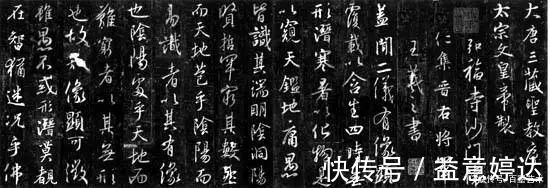 大唐三藏聖教序
太宗文皇帝製
弘福寺沙門
仁集晉右將
王羲之書
蓋聞二儀有像
覆載以含生四時
形潛寒暑以化物是
以窺天鑑地庸愚
皆識其端明陰洞陽
賢哲罕窮其數然
而天地苞乎陰陽而
易識者以其有像
也陰陽處乎天地而
難窮者以其無形
也故知像顯可徵
雖愚不惑形潛莫覩
在智猶迷況乎佛
快传号 / 益章婷达